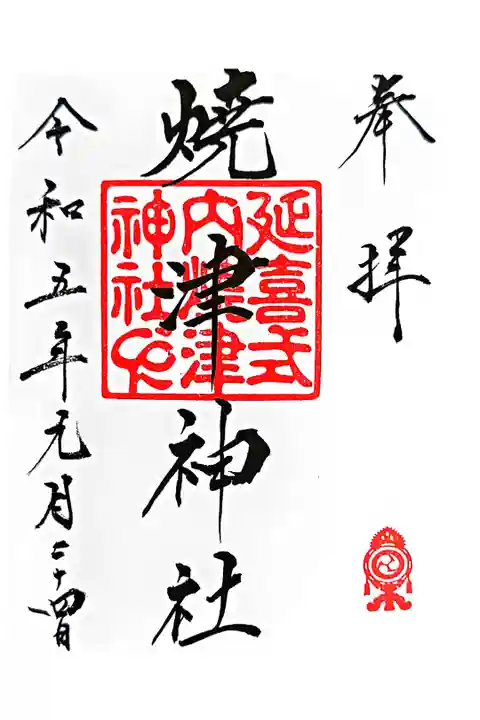 奉拝
焼津神社
延喜式
内焼津
神社印
令和五年元月二十四日